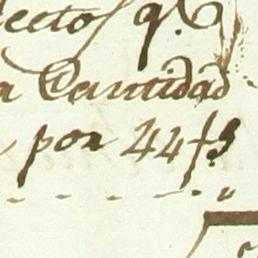 ectos q.
a Cantidad
por 44 f s